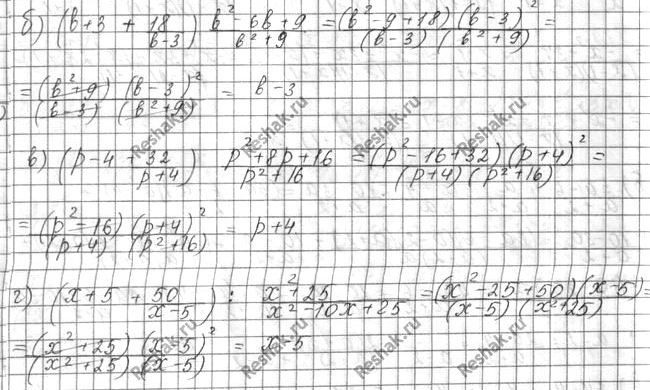 б) (b+3 + 18/(b-3)) (b²-6b+9)/(b²+9) = (b²-9+18)(b-3)²/((b-3)(b²+9)) =
= (b²+9)(b-3)²/((b-3)(b²+9)) = b-3
в) (p-4 + 32/(p+4)) (p²+8p+16)/(p²+16) = (p²-16+32)(p+4)²/((p+4)(p²+16)) =
= (p²+16)(p+4)²/((p+4)(p²+16)) = p+4.
г) (x+5 + 50/(x-5)) : (x²+25)/(x²-10x+25) = (x²-25+50)(x-5)/((x-5)(x²+25)) =
= (x²+25)(x-5)²/((x²+25)(x-5)) = x-5
Reshak.ru
Reshak.ru
Reshak.ru
Reshak.ru
Reshak.ru
Reshak.ru
Reshak.ru
Reshak.ru
Reshak.ru